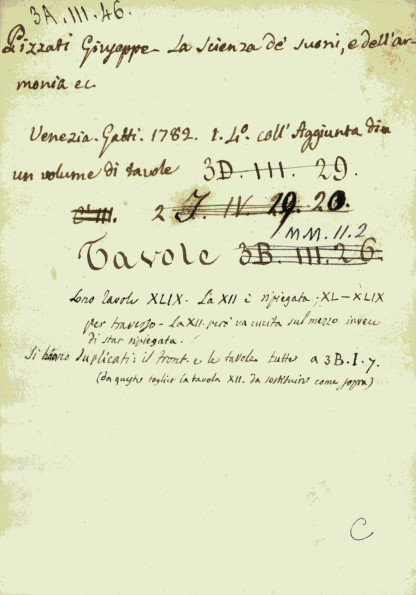 3A.III.46.
Pizzati Giuseppe - La scienza de' suoni, e dell'ar-
monia ec
Venezia. Gatti. 1782. 1. 4º. coll' Aggiunta di
un volume di tavole 3D. III. 29.
III. 2 J. IV. 29. 20.
MM. II. 2
Tavole 3B. III. 26.
Sono tavole XLIX - La XII è ripiegata; XL-XLIX
per traverso - La XII però va cucita sul mezzo invece
di star ripiegata.
Si hanno duplicati: il front. e le tavole tutte a 3B.I.7.
(da queste toglier la tavola XII. da sostituire come sopra)
C